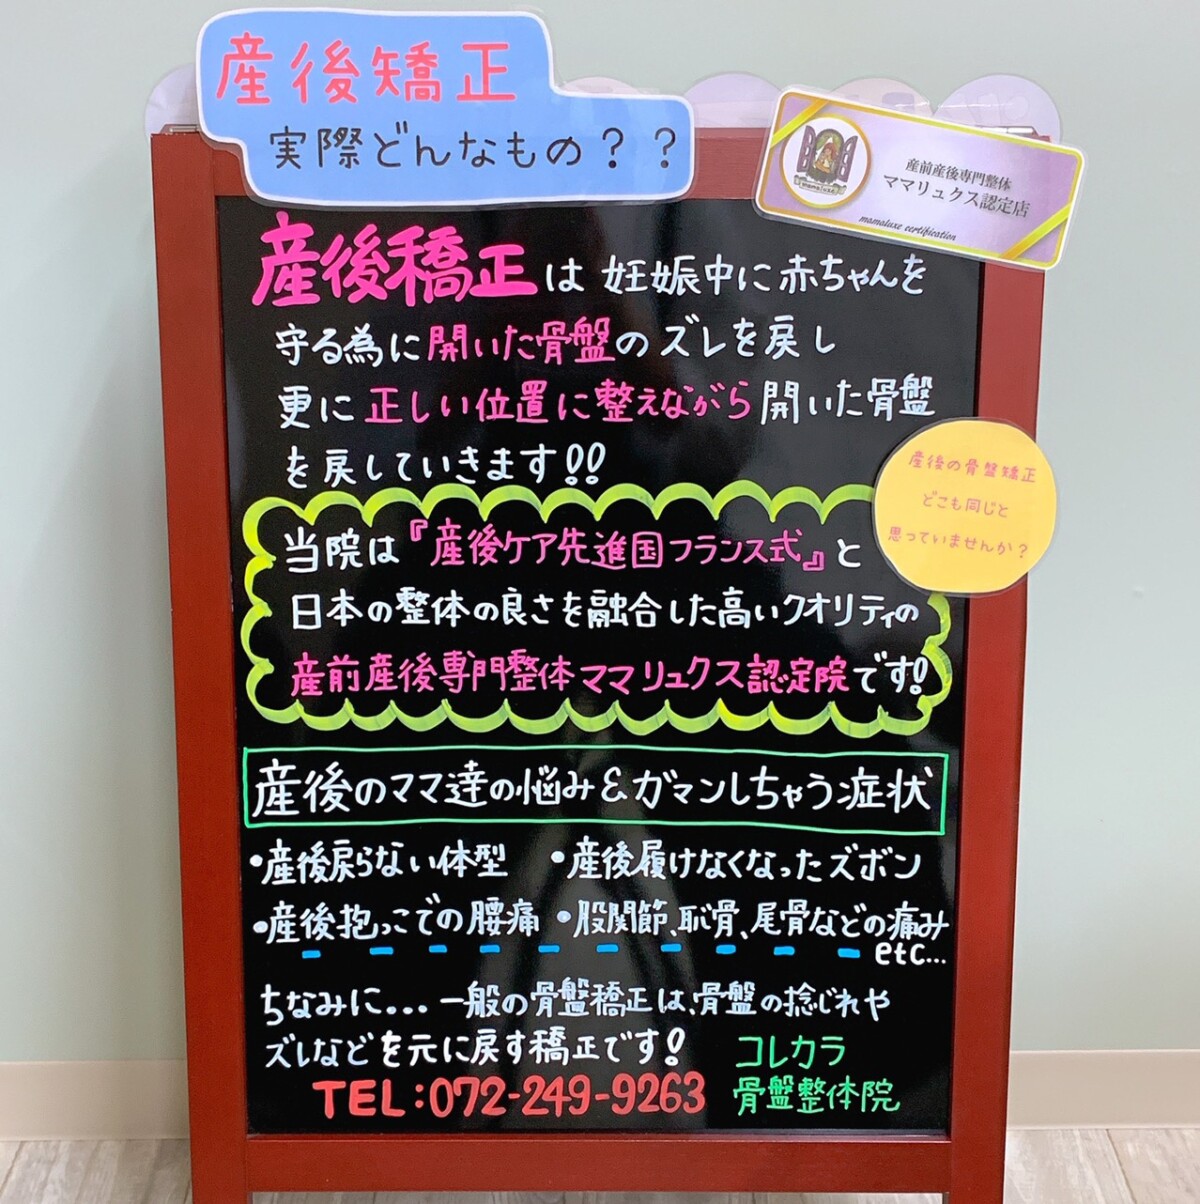 産後矯正
実際どんなもの??
産前産後専門整体
ママリュクス認定店
mamaluxe certification
産後矯正は妊娠中に赤ちゃんを
守る為に開いた骨盤のズレを戻し
更に正しい位置に整えながら開いた骨盤
を戻していきます!!
産後の骨盤矯正
どこも同じと
思っていませんか?
当院は『産後ケア先進国フランス式』と
日本の整体の良さを融合した高いクオリティの
産前産後専門整体ママリュクス認定院です!
産後のママ達の悩み&ガマンしちゃう症状
・産後戻らない体型 ・産後履けなくなったズボン
・産後抱っこでの腰痛 ・股関節、恥骨、尾骨などの痛み
etc...
ちなみに...一般の骨盤矯正は、骨盤の捻じれや
ズレなどを元に戻す矯正です!
TEL:072-249-9263
コレカラ
骨盤整体院